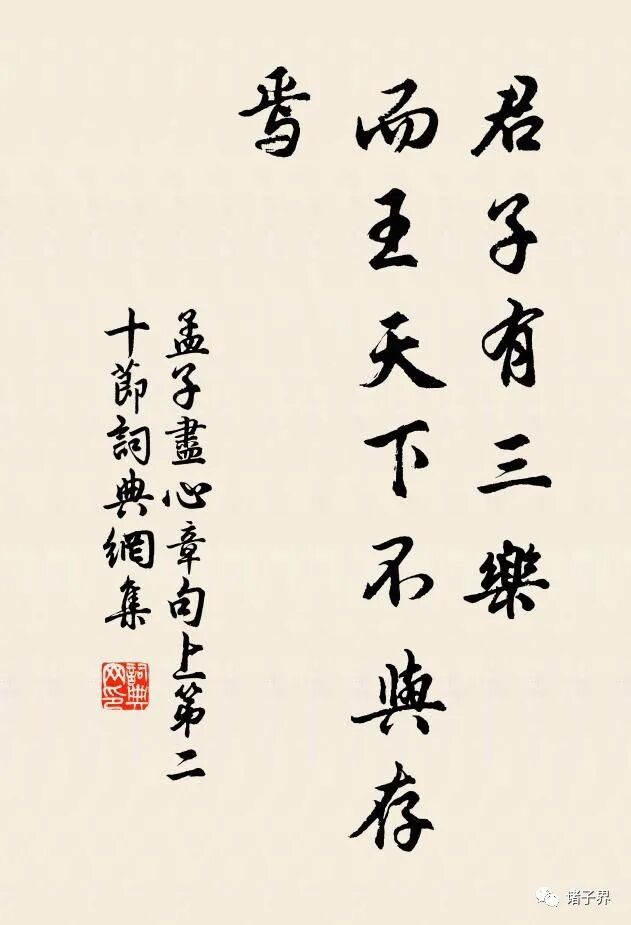 君子有三樂
而王天下不與存
焉
孟子盡心章句上第二
十節詞典網集
詞典
网印
诸子界